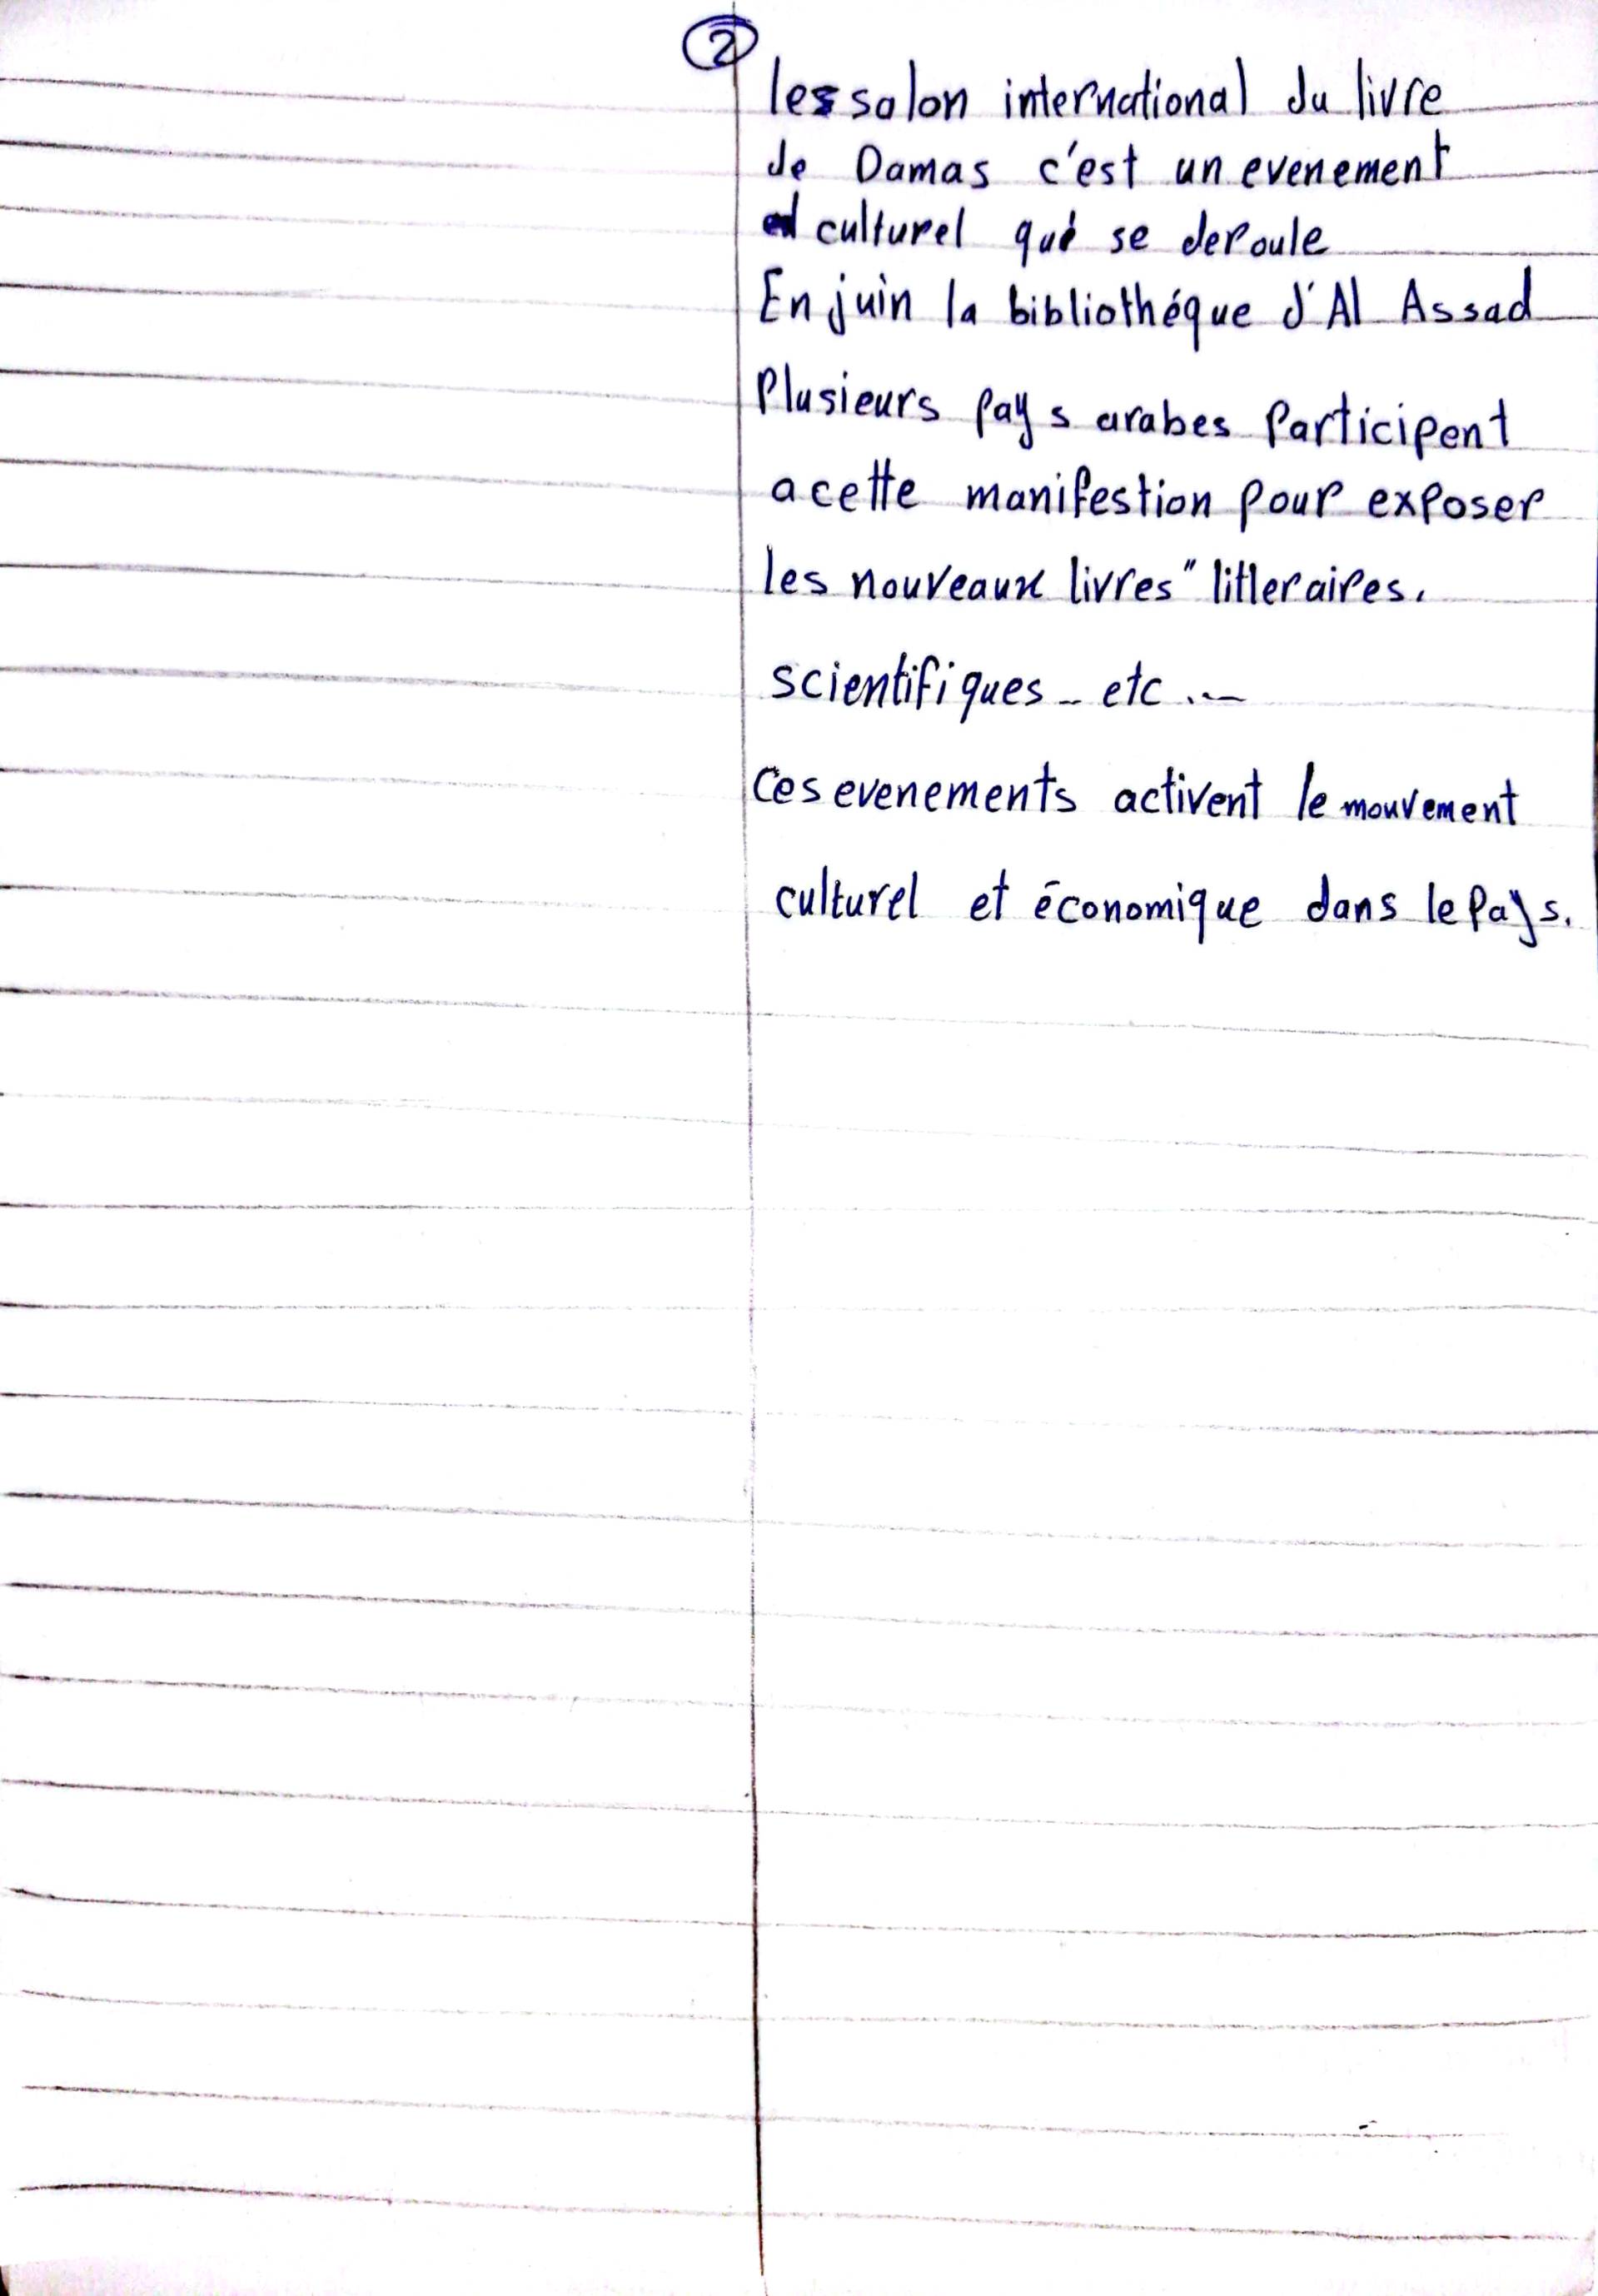 2
les salon international du livre
de Damas c'est un evenement
culturel qui se deroule
En juin la bibliothéque d'Al Assad
Plusieurs pays arabes Participent
a cette manifestion pour exposer
les nouveaux livres" litleraires.
scientifiques _ etc ...
Ces evenements activent le mouvement
culturel et économique dans le Pays.